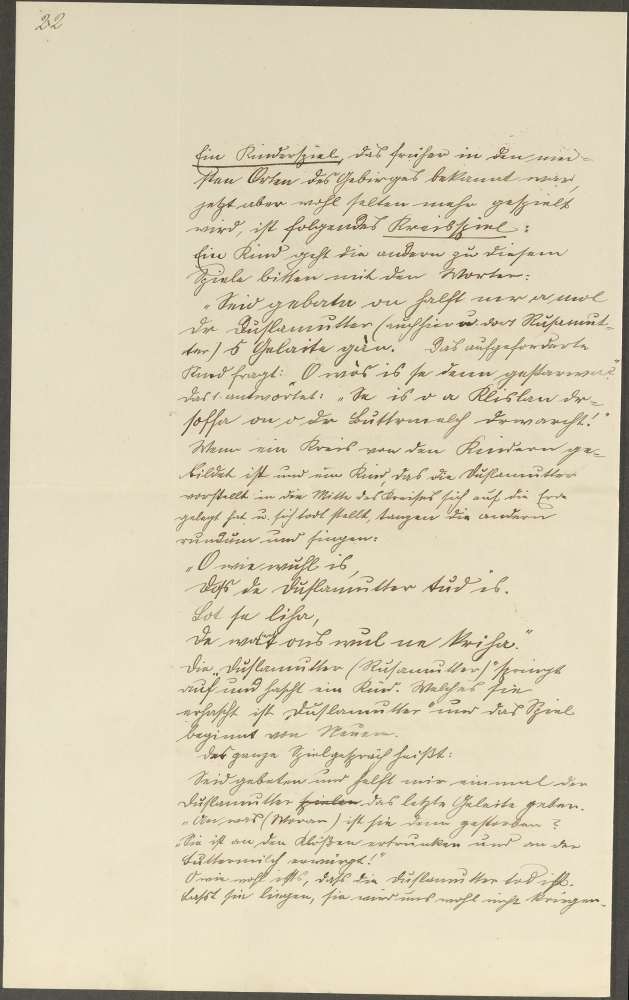 22
Ein Kinderspiel, das früher in den mei-
sten Orten des Gebirges bekannt war,
jetzt aber wohl selten mehr gespielt
wird, ist folgendes Kreisspiel:
Ein Kind geht die andern zu diesem
Spiele bitten mit den Worten:
"Seid gebata on halft mer a mol
dr Duslamutter (auch hier u. dort Rusamut-
ter) s Gelaite gan. Das aufgeforderte
Kind fragt: "O wos is se denn gestarwa?"
Das 1. antwortet: "Se is o a Klislan dr-
soffa on o dr Buttrmelch drwarcht!"
Wenn ein Kreis von den Kindern ge-
bildet ist und ein Kind, das die Duslamutter
vorstellt in die Mitte des Kreises sich auf die Erde
gelegt hat u. sich todt stellt, tanzen die andern
rundum und singen:
"O wie wuhl is,
Doss de Duslamutter tud is.
Lot se liha,
De watt ons wul ne kriha."
Die "Duslamutter (Rusamutter)" springt
auf und hascht ein Kind. Welches sie
erhascht ist "Duslamutter" und das Spiel
beginnt von Neuem.
Das ganze Spielgespräch heißt:
Seid gebeten und helft mir einmal der
Duslamutter spielen das letzte Geleite geben.
"An was (Woran) ist sie denn gestorben?
"Sie ist an den Klößen ertrunken und an der
Buttermilch erwürgt!"
O wie wohl ists, daß die Duslamutter tod ist.
Lasst sie liegen, sie wird uns wohl nicht kriegen.